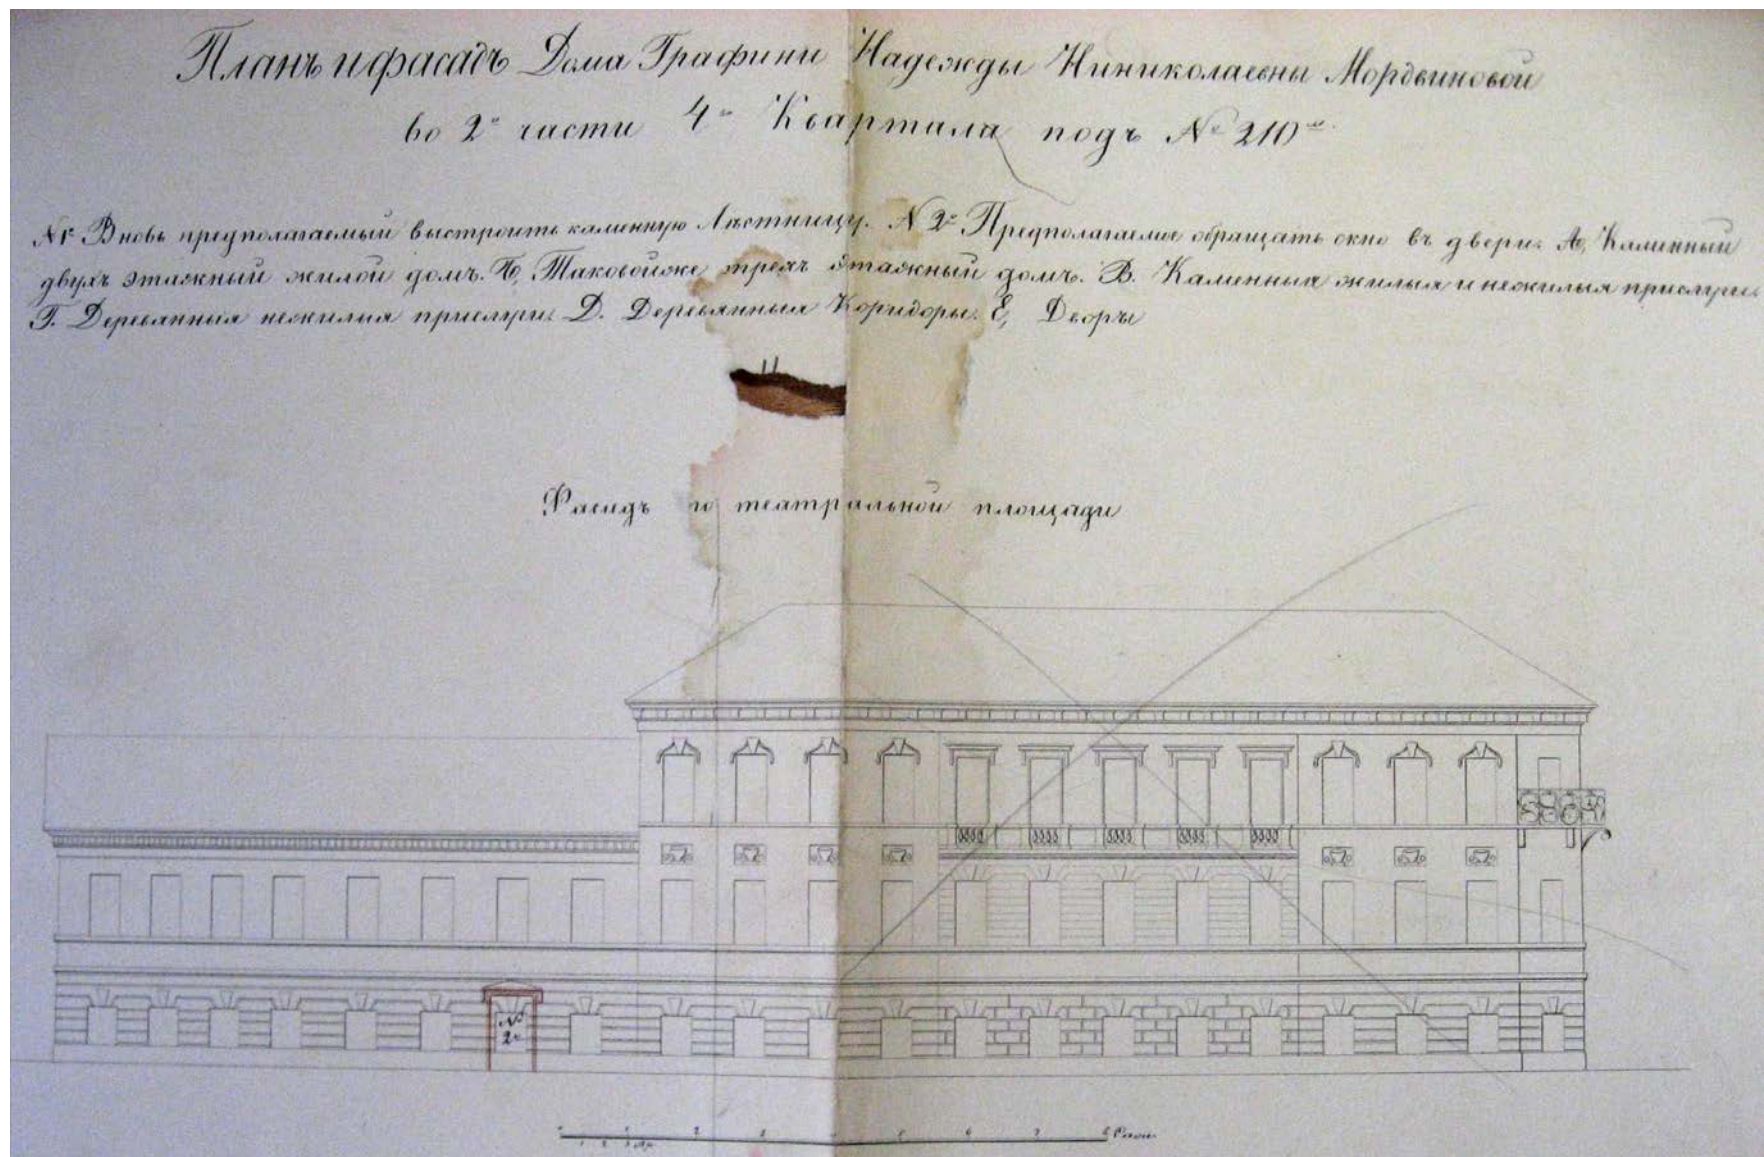 Планъ и фасадъ Дома Графини Надежды Нниколаевны Мордвиновой
во 2й части 4го Квартала подъ № 210м.
№1й Вновь предполагаемый выстроить каменную Лѣстницу. № 2й Предполагаемое обращать окно въ двери. А, Каменный
двухъ этажный жилой домъ. Б, Таковойже трехъ этажный домъ. В. Каменныя жилыя и нежилыя
Г. Деревянныя нежилыя Д. Деревянныя Коридоры. Е, Дворы
Фасадъ по театральной площади
№ 2й
1 2 3 Ар.
1 2 3 5 6 7 8 Саж.